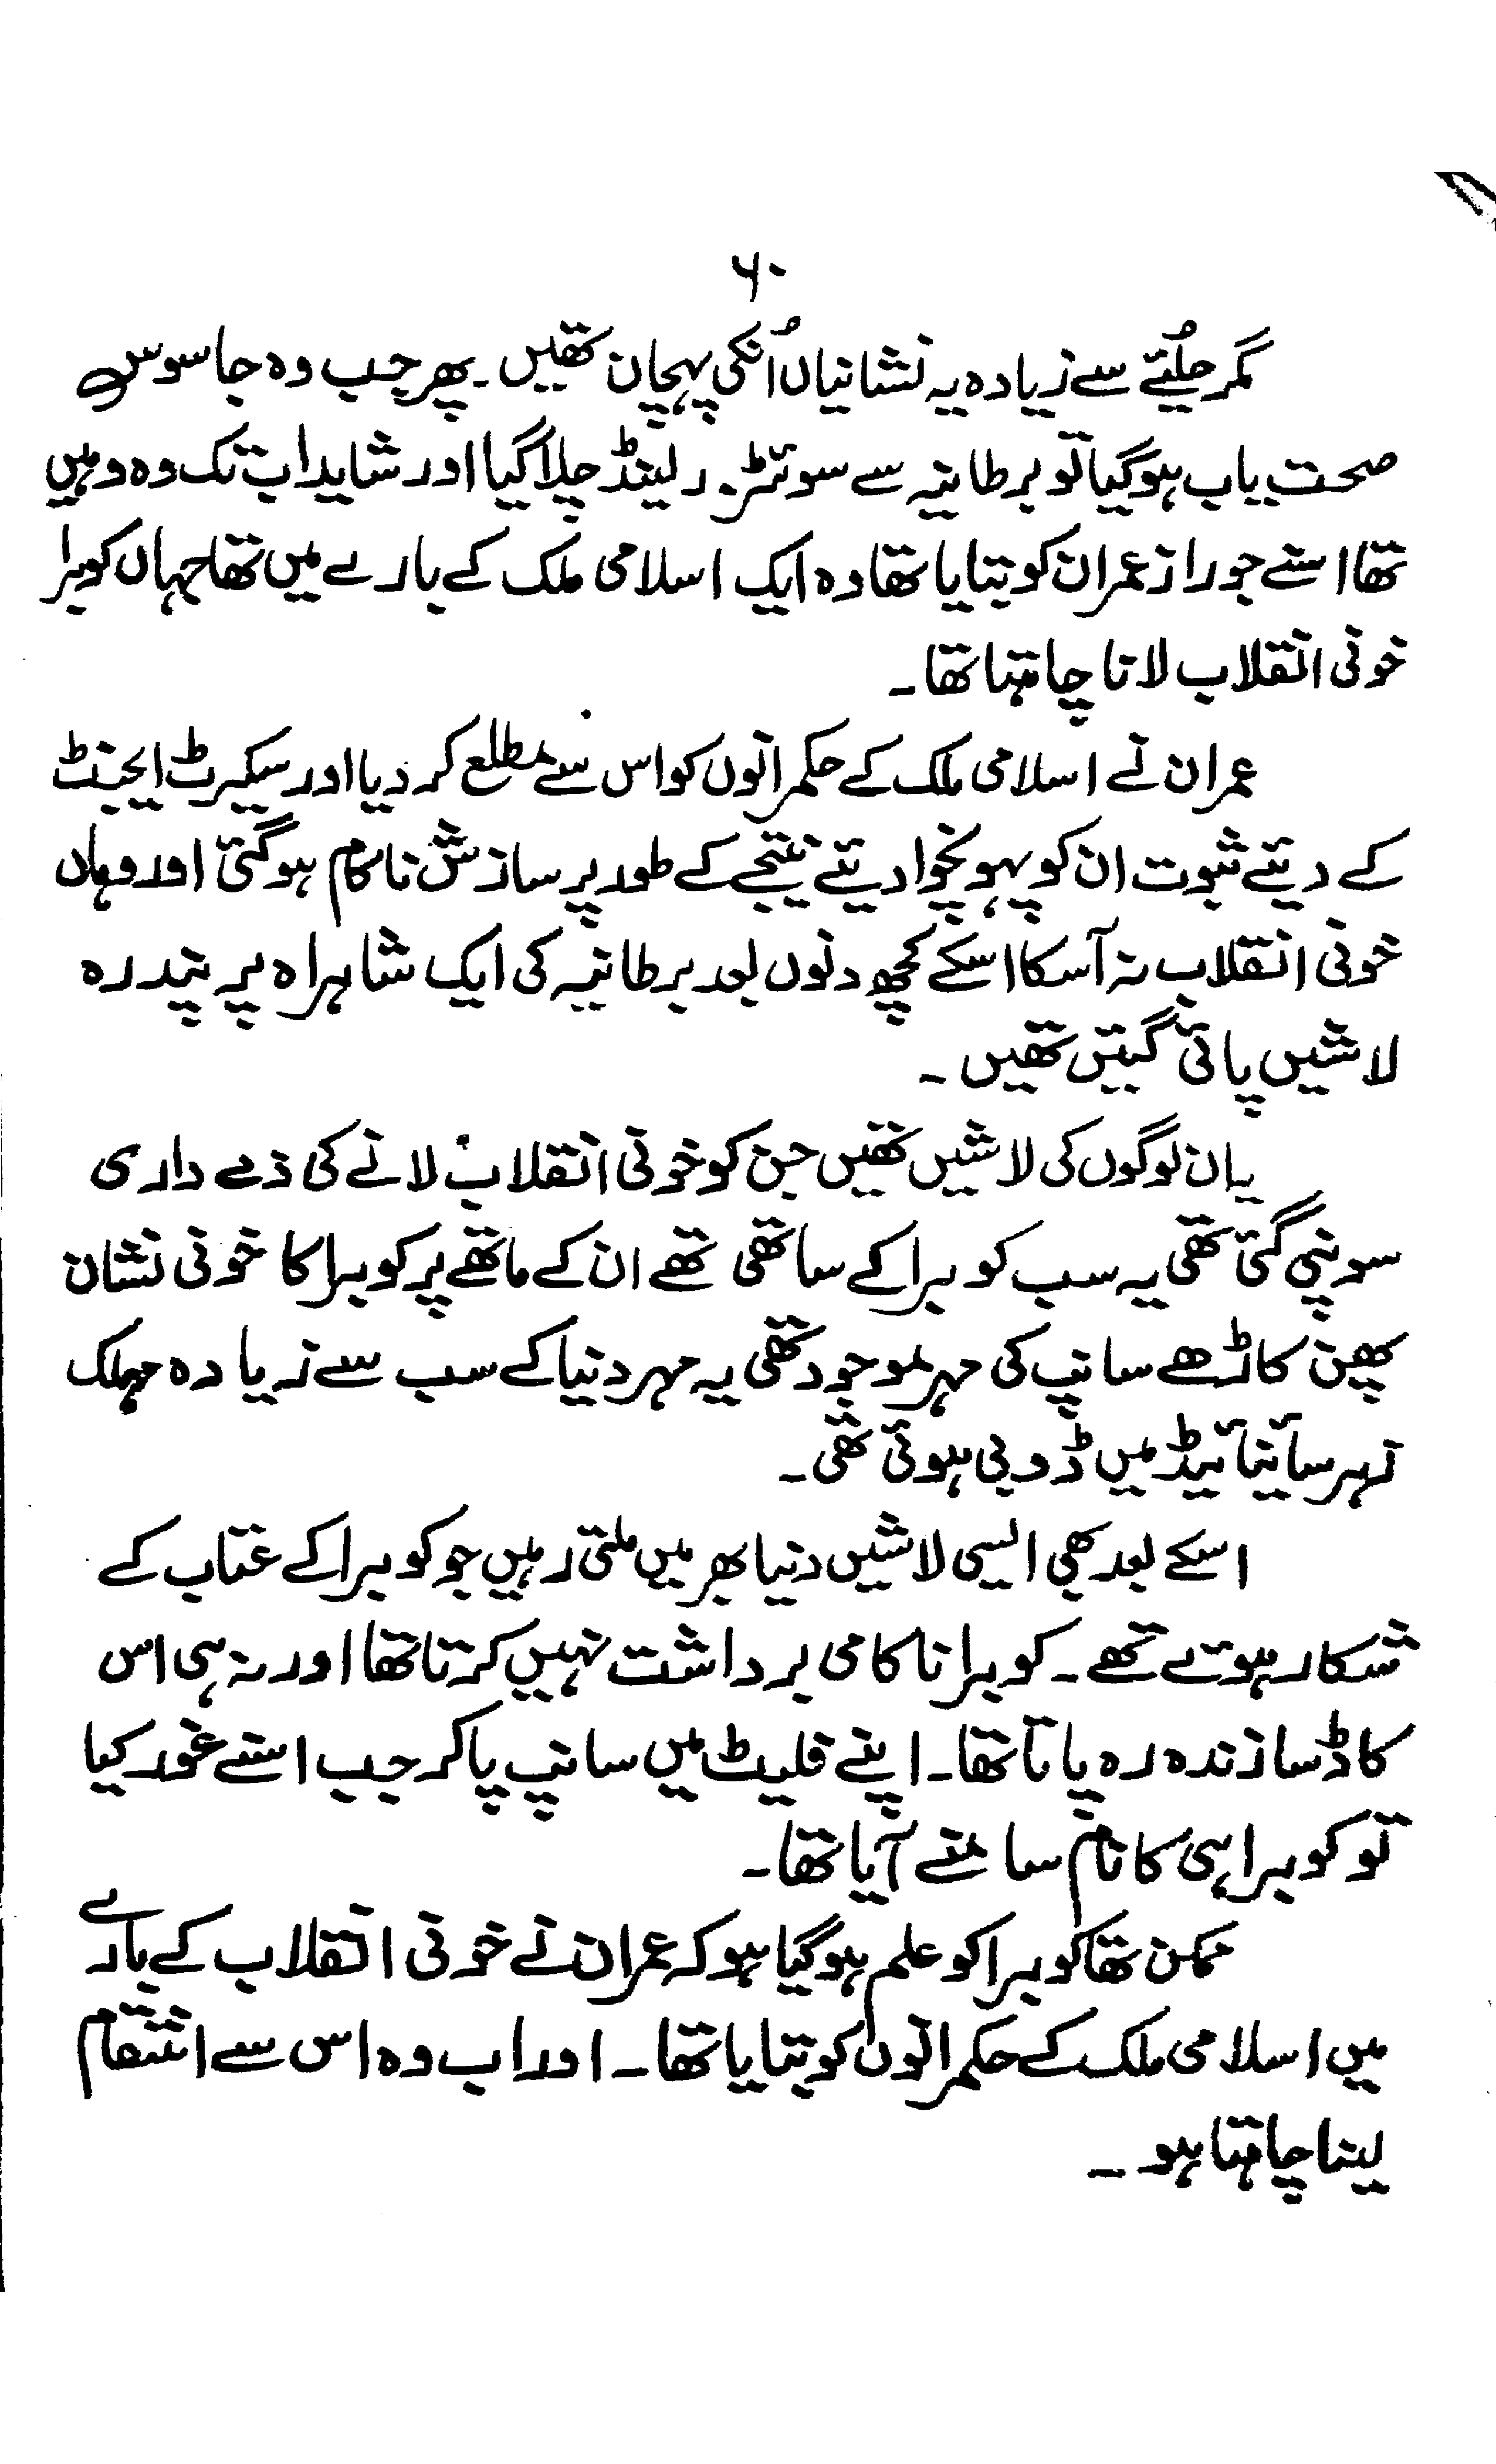 ۶۰
مگر حلُیئے سے زیادہ یہ نشانیاں اُنکی پہچان تھیں ۔ پھر جب وہ جاسوس
صحت یاب ہوگیا تو برطانیہ سے سوئٹزرلینڈ چلا گیا اور شاید اب تک وہ وہیں
تھا اسنے جو راز عمران کو بتایا تھا وہ ایک اسلامی ملک کے بارے میں تھا جہاں کوبرا
خونی انقلاب لانا چاہتا تھا ۔
عمران نے اسلامی ملک کے حکمرانوں کو اس سے مطلع کر دیا اور سیکرٹ ایجنٹ
کے دیئے ثبوت ان کو پہونچوا دیئے نتیجے کے طور پر سازش ناکام ہوگئی اور وہاں
خونی انقلاب نہ آسکا اسکے کچھ دنوں بعد برطانیہ کی ایک شاہراہ پر پندرہ
لاشیں پائی گیئں تھیں ۔
یہ ان لوگوں کی لاشیں تھیں جن کو خونی انقلاب لانے کی ذمے داری
سونپی گئی تھی یہ سب کوبرا کے ساتھی تھے ان کے ماتھے پر کوبرا کا خونی نشان
پھن کاڑھے سانپ کی مہر موجود تھی یہ مہر دنیا کے سب سے زیادہ مہلک
زہر سائینائیڈ میں ڈوبی ہوئی تھی ۔
اسکے بعد بھی ایسی لاشیں دنیا بھر میں ملتی رہیں جو کوبرا کے عتاب کے
شکار ہوتے تھے ۔ کوبرا ناکامی برداشت نہیں کرتا تھا اور نہ ہی اس
کا ڈسا زندہ رہ پاتا تھا ۔ اپنے فلیٹ میں سانپ پاکر جب اسنے غور کیا
تو کوبرا ہی کا نام سامنے آیا تھا ۔
ممکن تھا کوبرا کو علم ہوگیا ہو کہ عمران نے خونی انقلاب کے بارے
میں اسلامی ملک کے حکمرانوں کو بتایا تھا ۔ اور اب وہ اس سے انتقام
لینا چاہتا ہو ۔